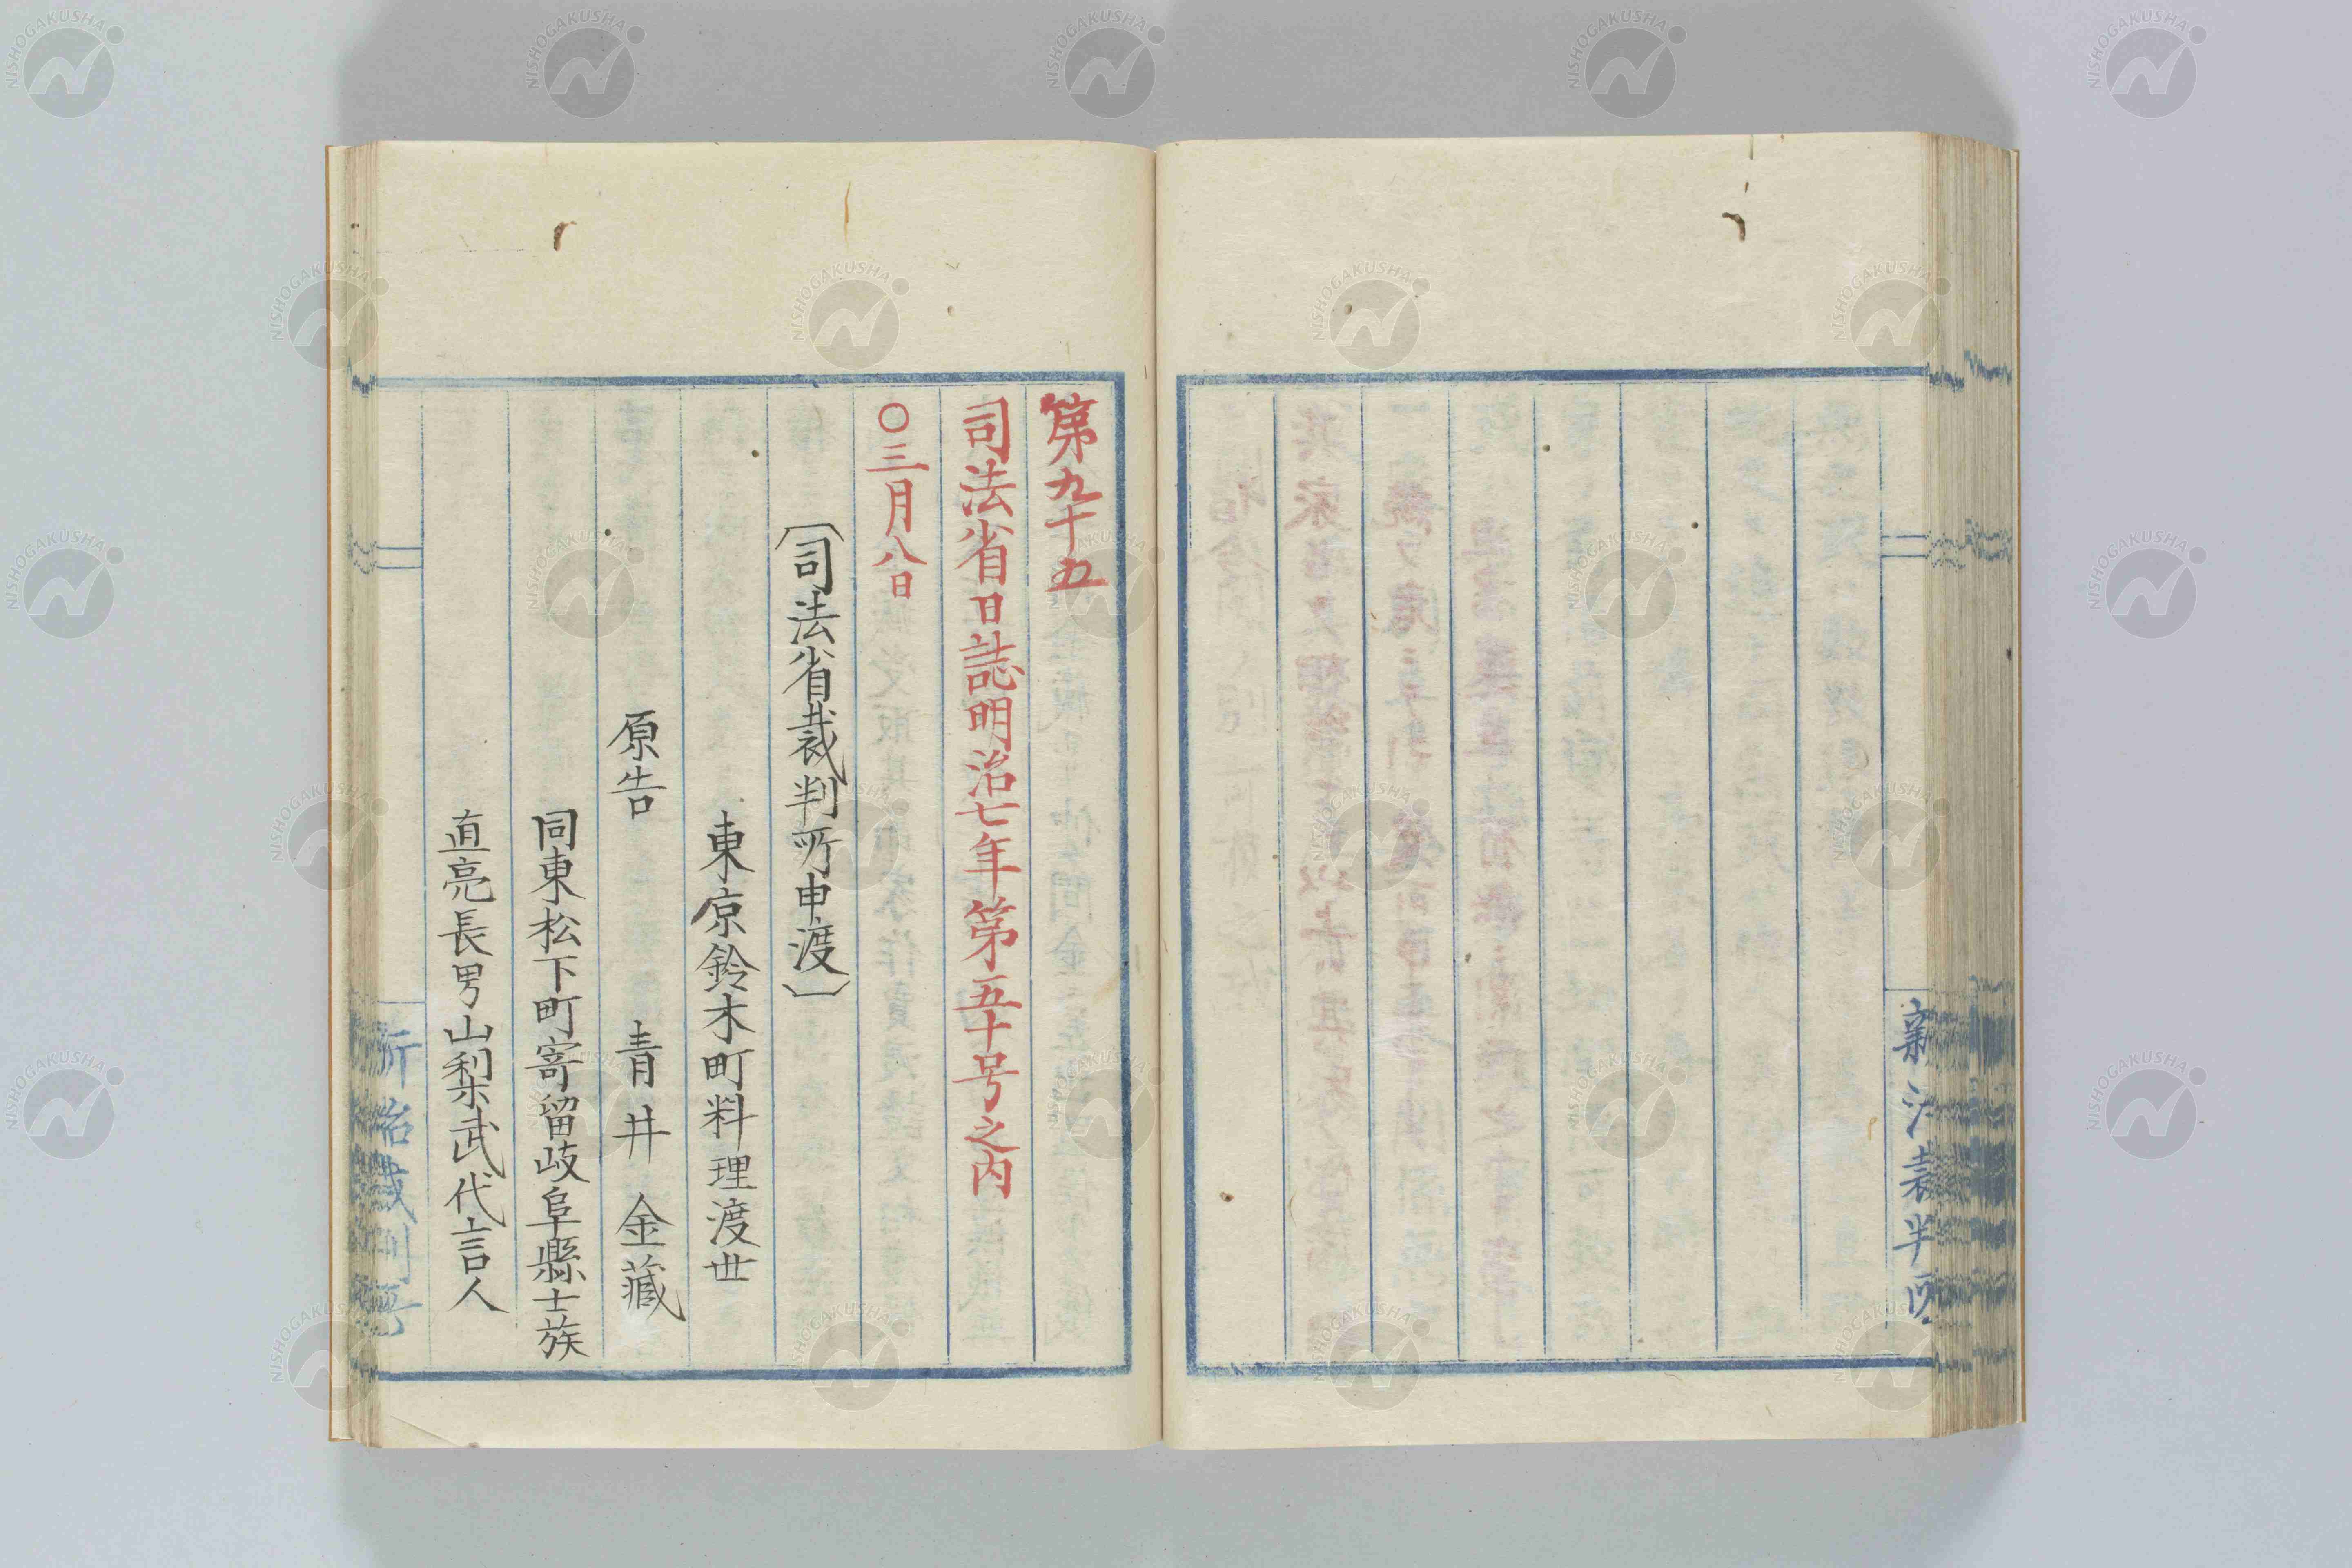 第九十五
司法省日誌明治七年第五十号之内
〇三月八日
〔司法省裁判所申渡〕
東京鈴木町料理渡世
原告 青井金藏
同東松下町寄留岐阜縣士族
直亮長男山梨武代言人
NISHOGAKUSHA